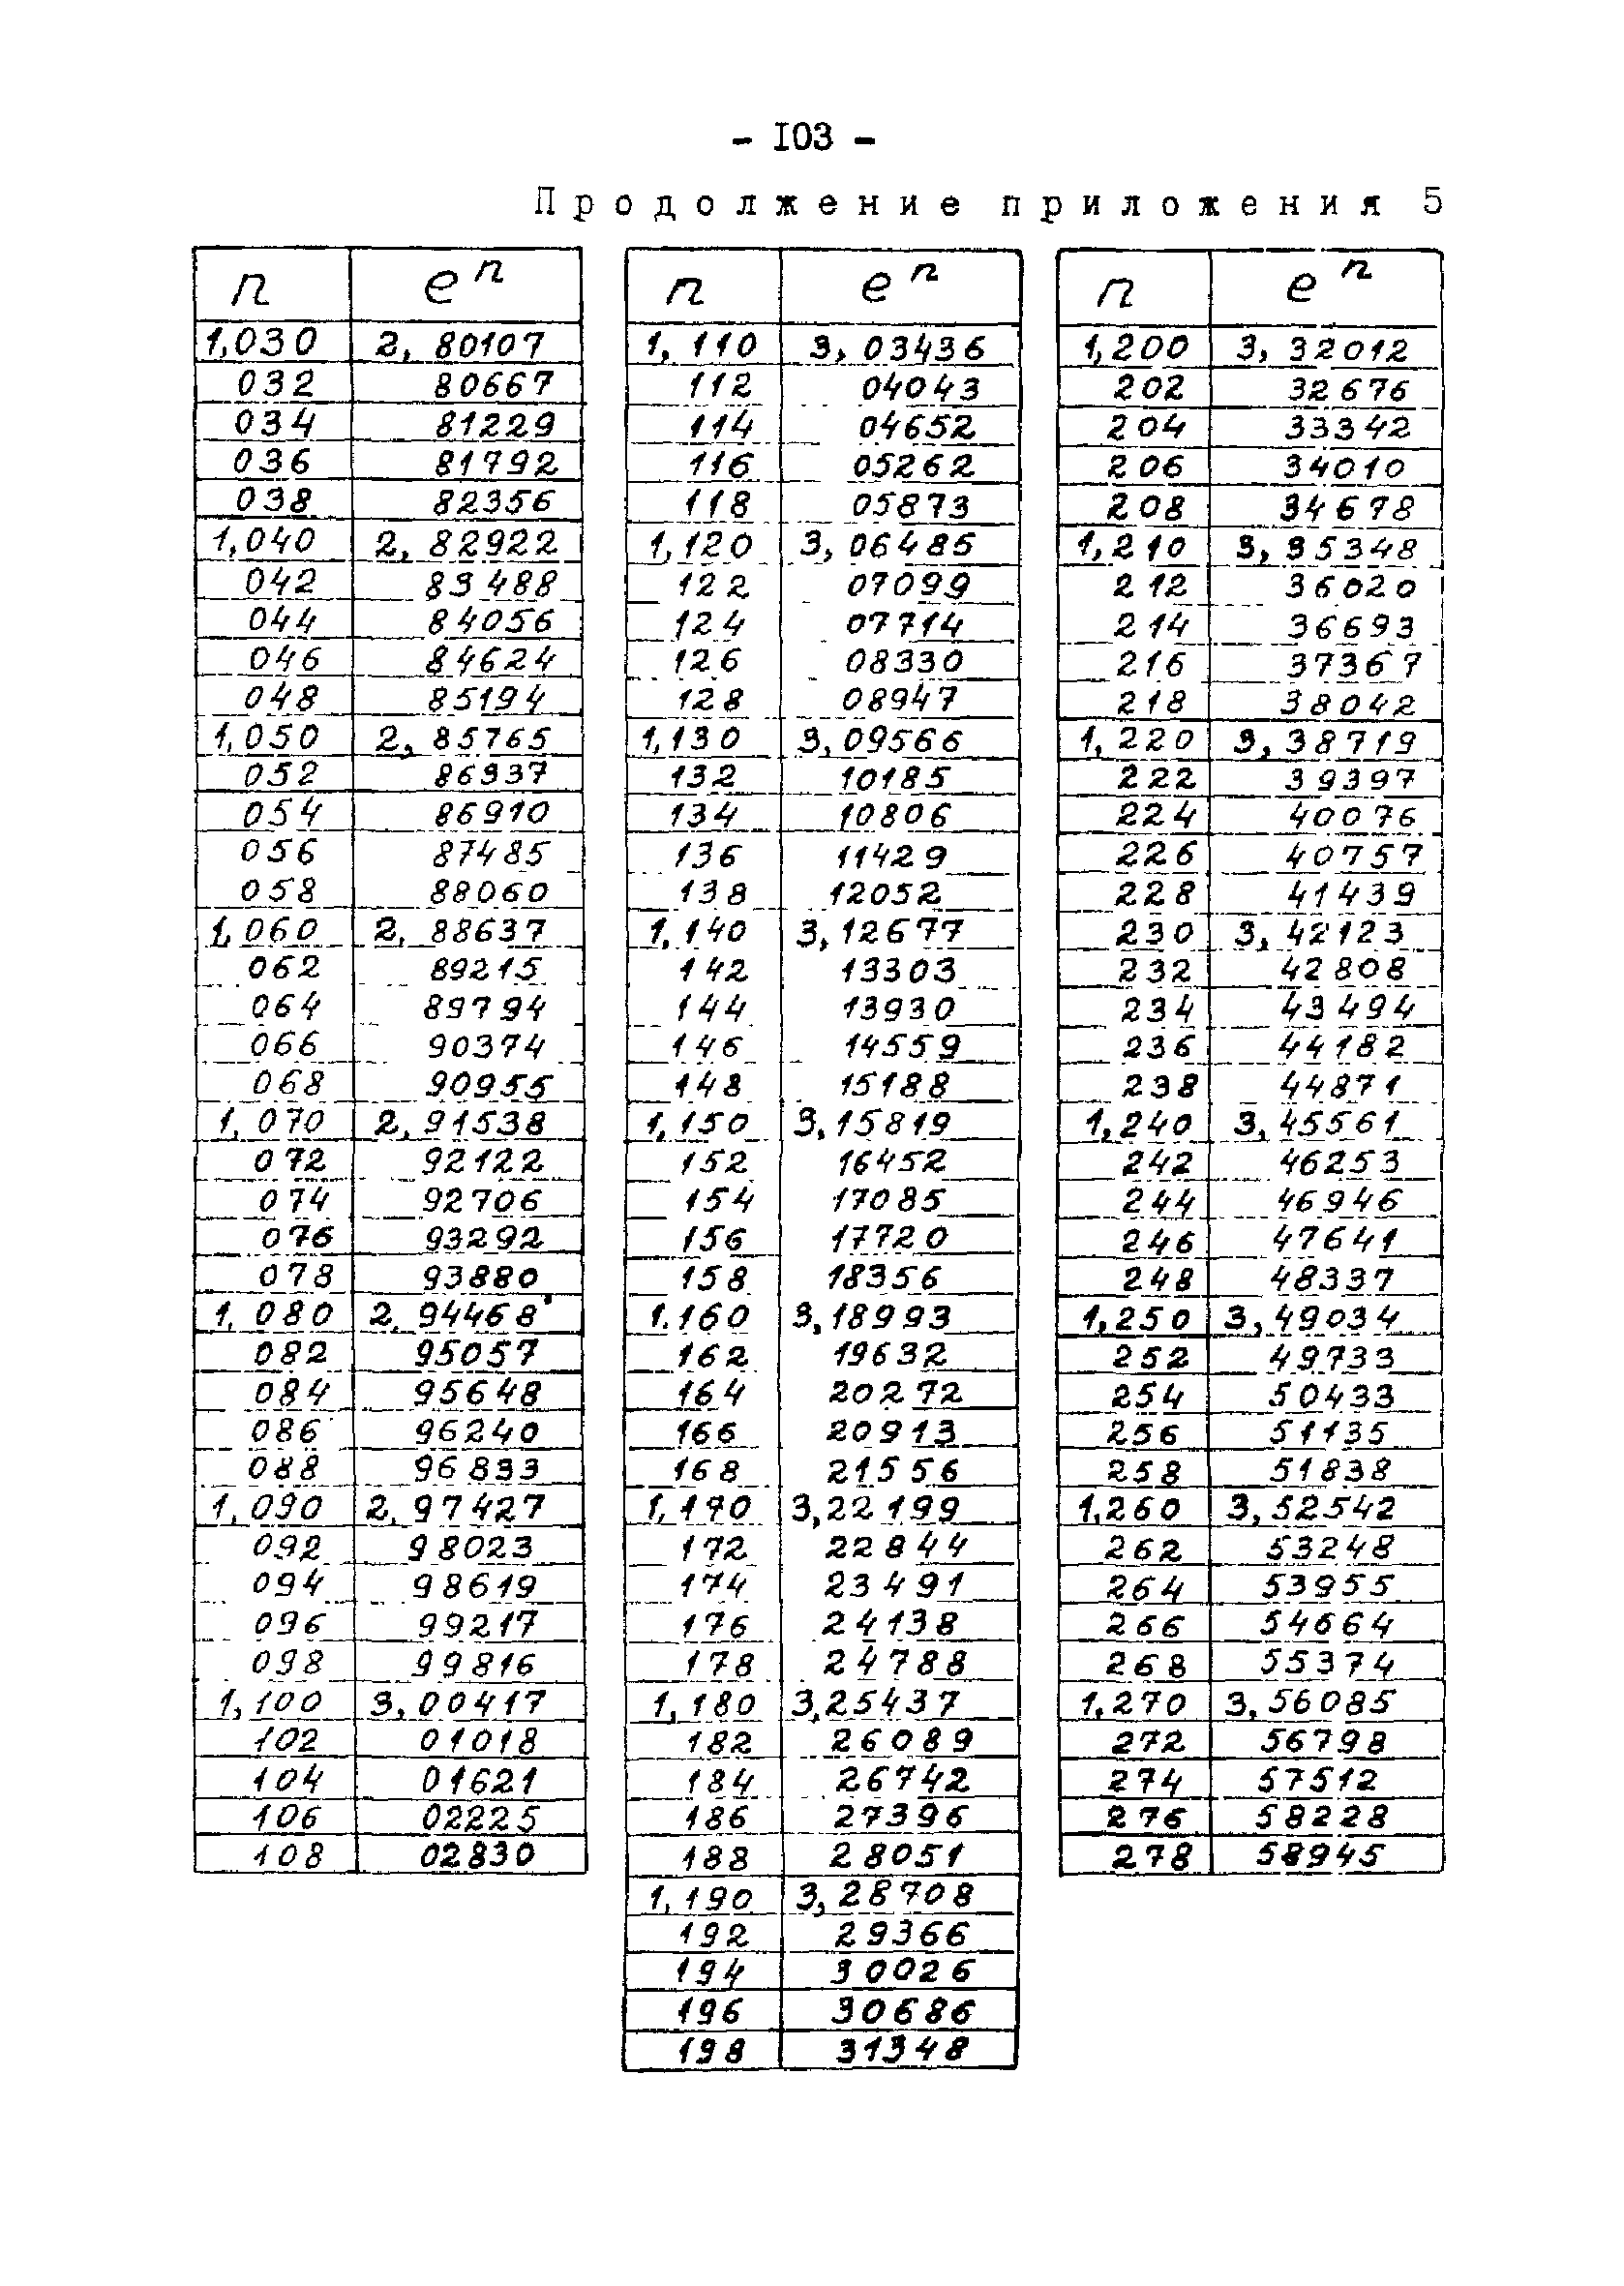 - I03 -
Продолжение приложения 5
n e^n
1,030 2, 80107
032 80667
034 81229
036 81792
038 82356
1,040 2, 82922
042 83488
044 84056
046 84624
048 85194
1,050 2, 85765
052 86337
054 86910
056 87485
058 88060
1,060 2, 88637
062 89215
064 89794
066 90374
068 90955
1,070 2, 91538
072 92122
074 92706
076 93292
078 93880
1,080 2, 94468
082 95057
084 95648
086 96240
088 96833
1,090 2, 97427
092 98023
094 98619
096 99217
098 99816
1,100 3, 00417
102 01018
104 01621
106 02225
108 02830
n e^n
1,110 3, 03436
112 04043
114 04652
116 05262
118 05873
1,120 3, 06485
122 07099
124 07714
126 08330
128 08947
1,130 3, 09566
132 10185
134 10806
136 11429
138 12052
1,140 3, 12677
142 13303
144 13930
146 14559
148 15188
1,150 3, 15819
152 16452
154 17085
156 17720
158 18356
1.160 3, 18993
162 19632
164 20272
166 20913
168 21556
1,170 3, 22199
172 22844
174 23491
176 24138
178 24788
1,180 3, 25437
182 26089
184 26742
186 27396
188 28051
1,190 3, 28708
192 29366
194 30026
196 30686
198 31348
n e^n
1,200 3, 32012
202 32676
204 33342
206 34010
208 34678
1,210 3, 35348
212 36020
214 36693
216 37367
218 38042
1,220 3, 38719
222 39397
224 40076
226 40757
228 41439
230 3, 42123
232 42808
234 43494
236 44182
238 44871
1,240 3, 45561
242 46253
244 46946
246 47641
248 48337
1,250 3, 49034
252 49733
254 50433
256 51135
258 51838
1,260 3, 52542
262 53248
264 53955
266 54664
268 55374
1,270 3, 56085
272 56798
274 57512
276 58228
278 58945